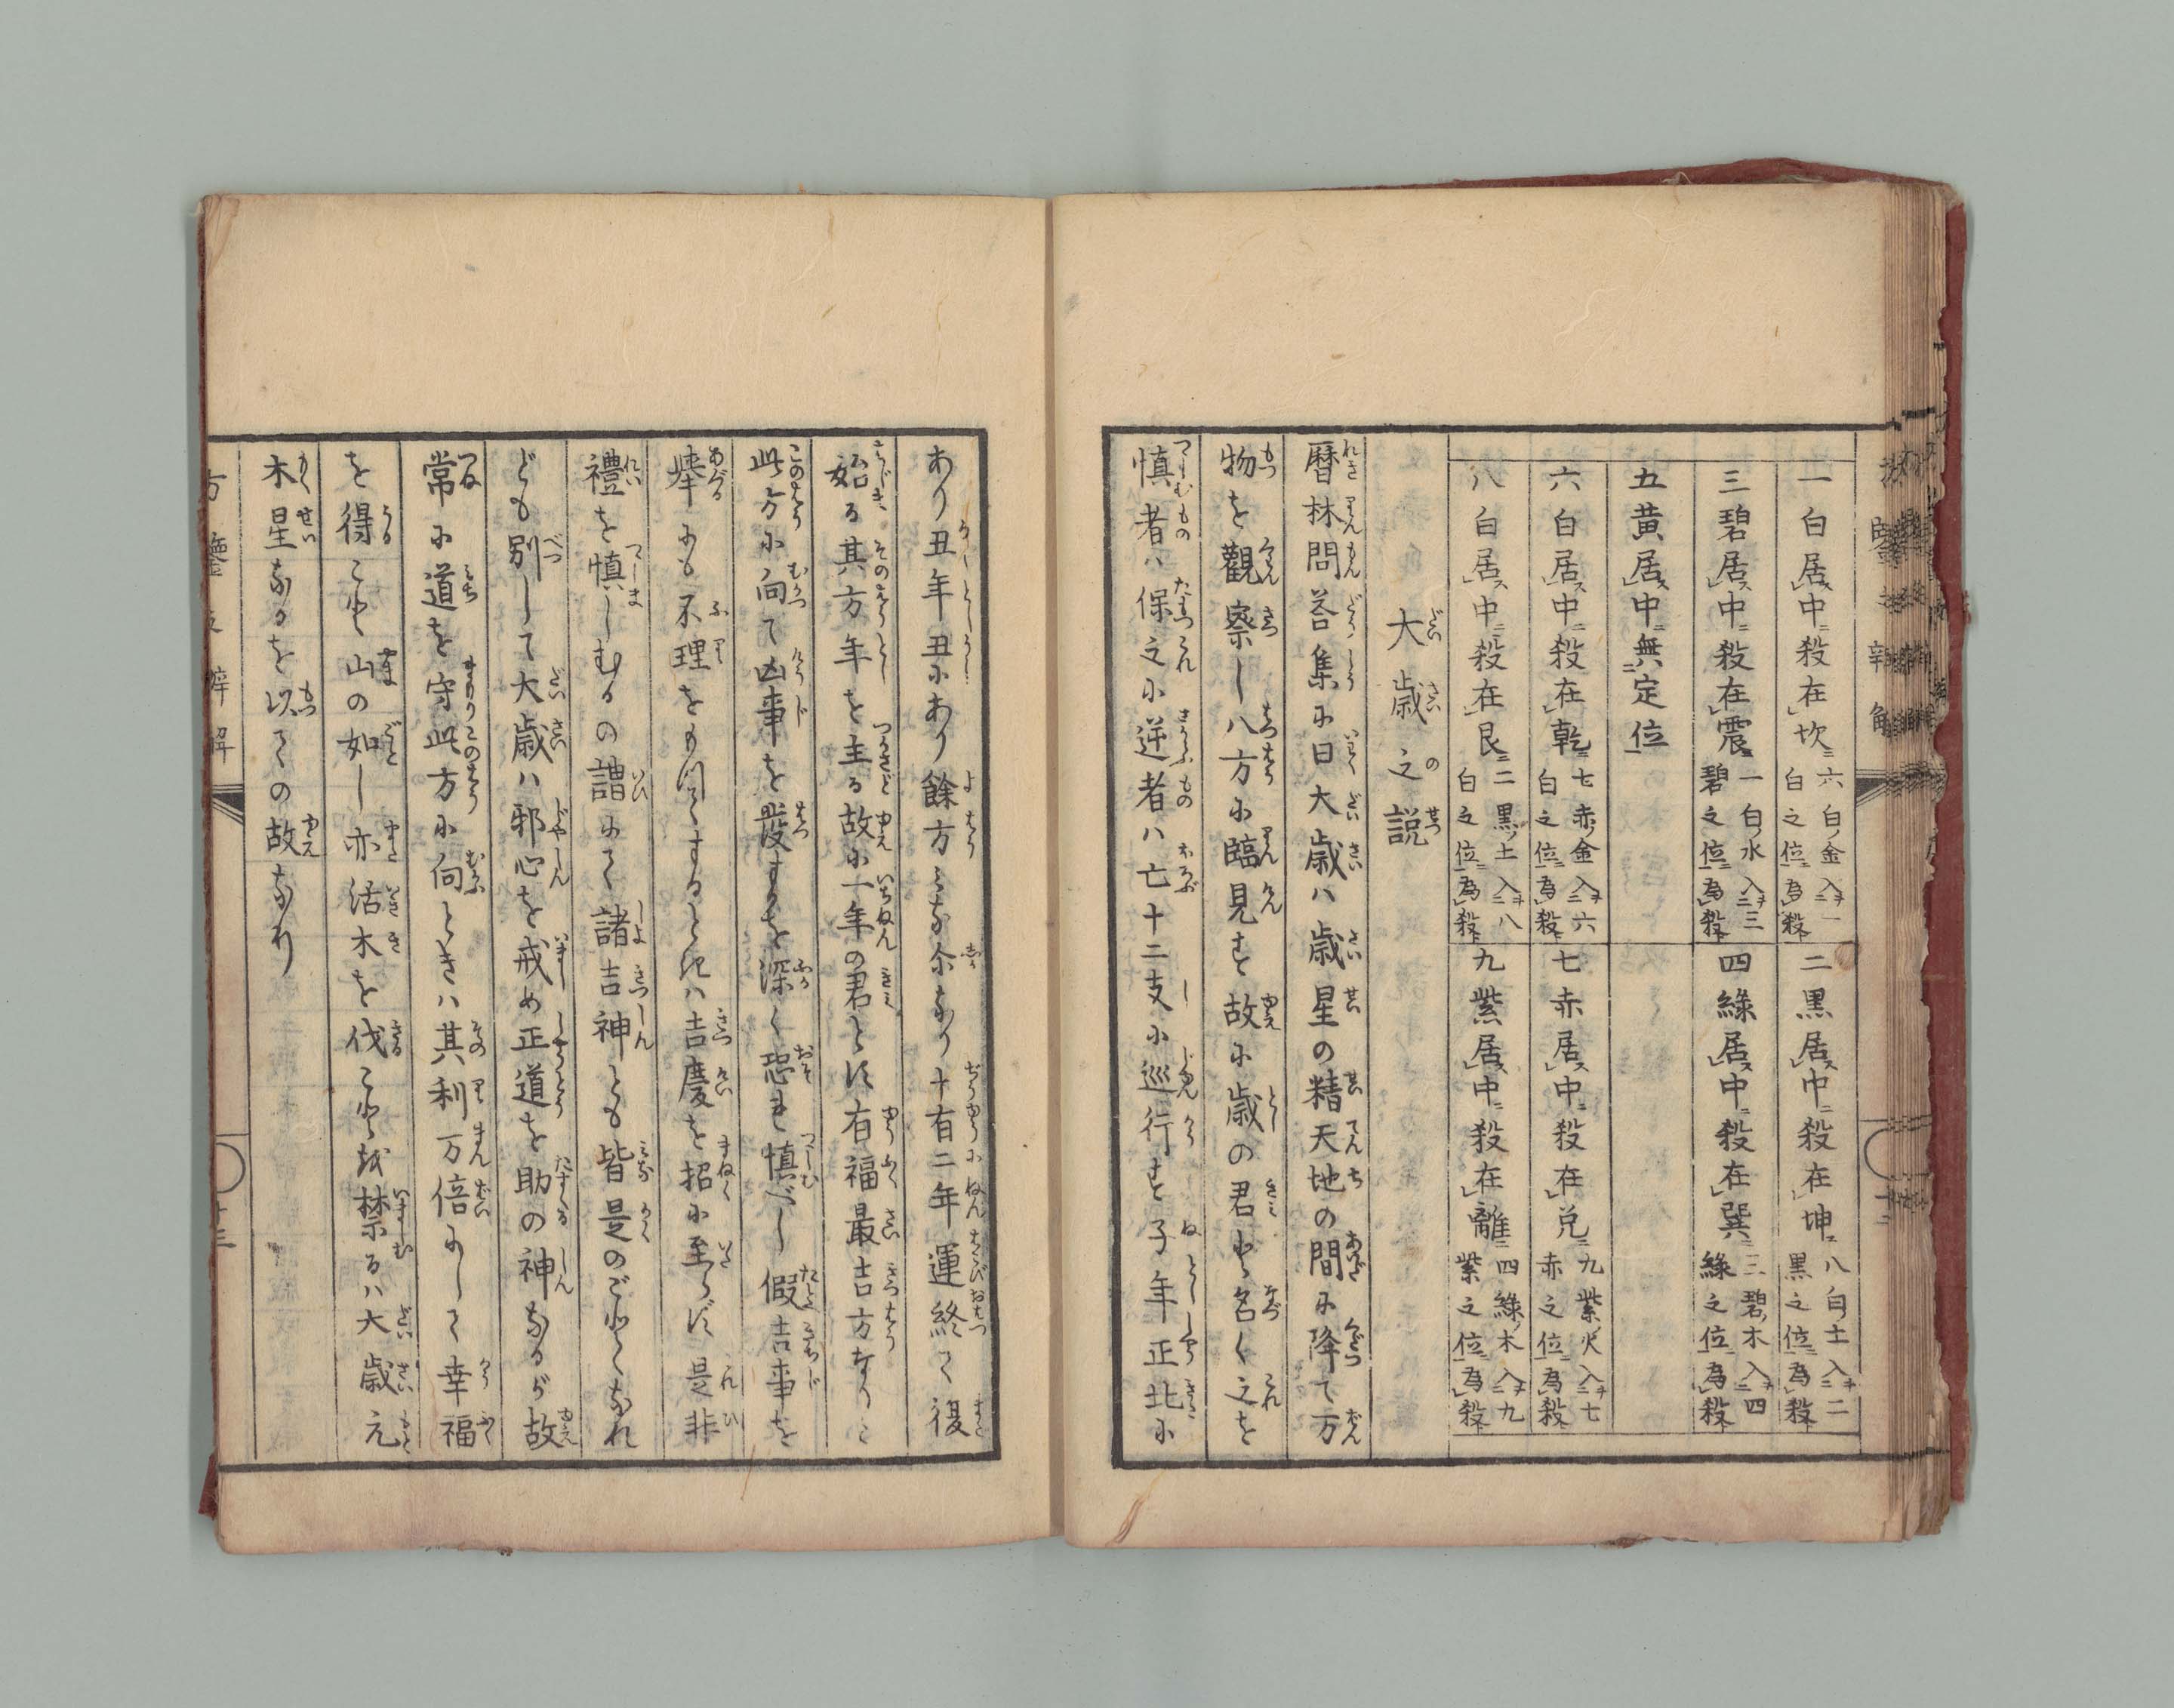 一白居ス中ニ殺在坎ニ 六白ノ金入テ二一白之位ニ為殺ト
二黒居ス中ニ殺在坤ニ 八白ノ土入テ二二黒之位ニ為殺ト
三碧居ス中ニ殺在震ニ 一白ノ水入テ二三碧之位ニ為殺ト
四綠居ス中ニ殺在巽ニ 三碧ノ木入テ二四綠之位ニ為殺ト
五黄居ス中ニ無定位
六白居ス中ニ殺在乾ニ 七赤ノ金入テ二六白之位ニ為殺ト
七赤居ス中ニ殺在兌ニ 九紫ノ火入テ二七赤之位ニ為殺ト
八白居ス中ニ殺在艮ニ 二黒ノ土入テ二八白之位ニ為殺ト
九紫居ス中ニ殺在離ニ 四綠ノ木入テ二九紫之位ニ為殺ト
大歳之説
暦林問荅集に曰大歳ハ歳星の精天地の間に降て万
物を觀察し八方に臨見す故に歳の君と名く之を
慎者ハ保之に逆者ハ亡十二支に巡行す子年正北に
あり丑年丑にあり餘方みな尒なり十有二年運終て復
始る其方年を主る故に一年の君とす有福最吉方なりこ
此方に向て凶事を發するを深く恐れ慎べし假吉事を
擧にも不理をもつてするときハ吉慶を招に至らず是非
禮を慎しむるの謂にて諸吉神とも皆是のごとくなれ
ども別して大歳ハ邪心を戒め正道を助の神なるが故
常に道を守此方に向ときハ其利万倍にして幸福
を得こと山の如し亦活木を伐ことを禁るハ大歳元
木星なるを以ての故なり
方鑒之辨解
十三